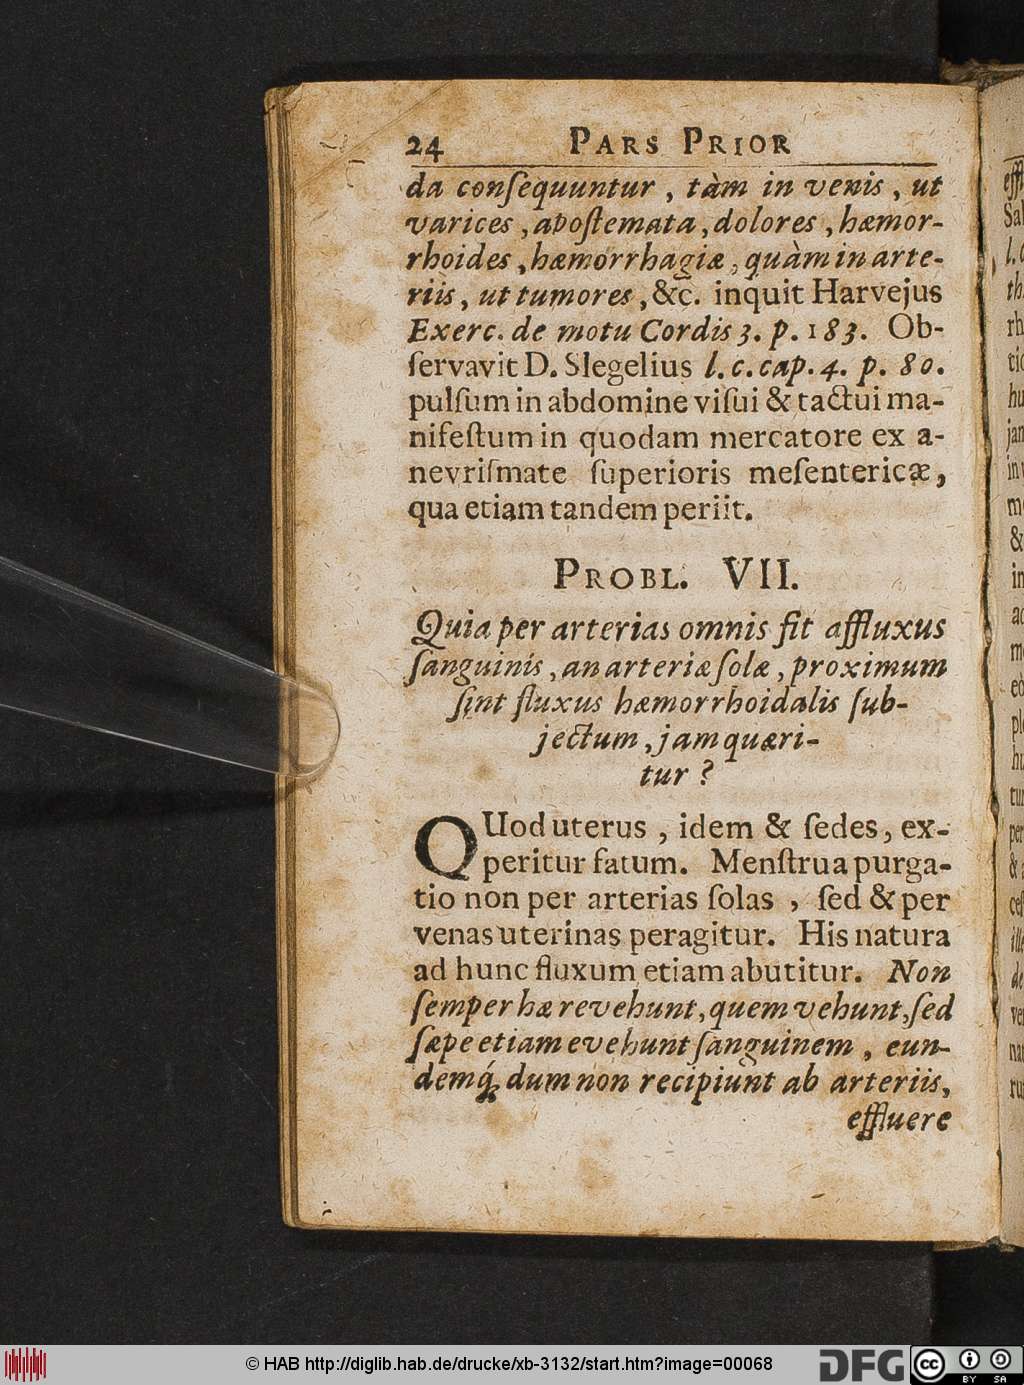 24 PARS PRIOR
da conſequuntur, tàm in venis, ut
varices, apoſtemata, dolores, hæmor-
rhoides, hæmorrhagiæ, quàm in arte-
riis, ut tumores, &c. inquit Harvejus
Exerc. de motu Cordis 3. p. 183. Ob-
ſervavit D. Slegelius l. c. cap. 4. p. 80.
pulſum in abdomine viſui & tactui ma-
nifeſtum in quodam mercatore ex a-
nevriſmate ſuperioris meſentericæ,
qua etiam tandem periit.
PROBL. VII.
Quia per arterias omnis fit affluxus
ſanguinis, an arteriæ ſolæ, proximum
ſint fluxus hæmorrhoidalis ſub-
jectum, jam quæri-
tur?
QUod uterus, idem & ſedes, ex-
peritur fatum. Menſtrua purga-
tio non per arterias ſolas, ſed & per
venas uterinas peragitur. His natura
ad hunc fluxum etiam abutitur. Non
ſemper hæ revehunt, quem vehunt, ſed
ſæpe etiam evehunt ſanguinem, eun-
demq́; dum non recipiunt ab arteriis,
effluere
© HAB http://diglib.hab.de/drucke/xb-3132/start.htm?image=00068
DFG
cc BY SA